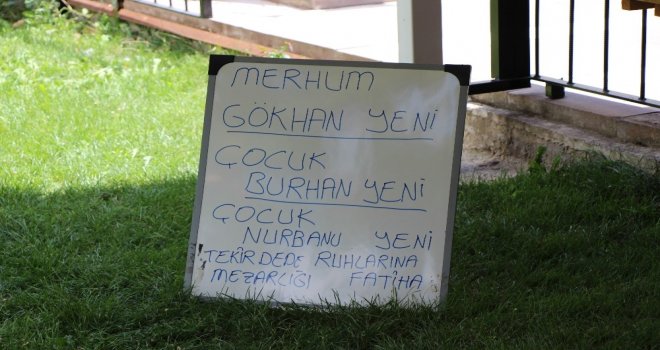 MERHUM
GÖKHAN YENİ
ÇOCUK
BURHAN YENİ
ÇOCUK
NURBANU YENİ
TEKİR DEDE RUHLARINA
MEZARLIĞI FATİHA